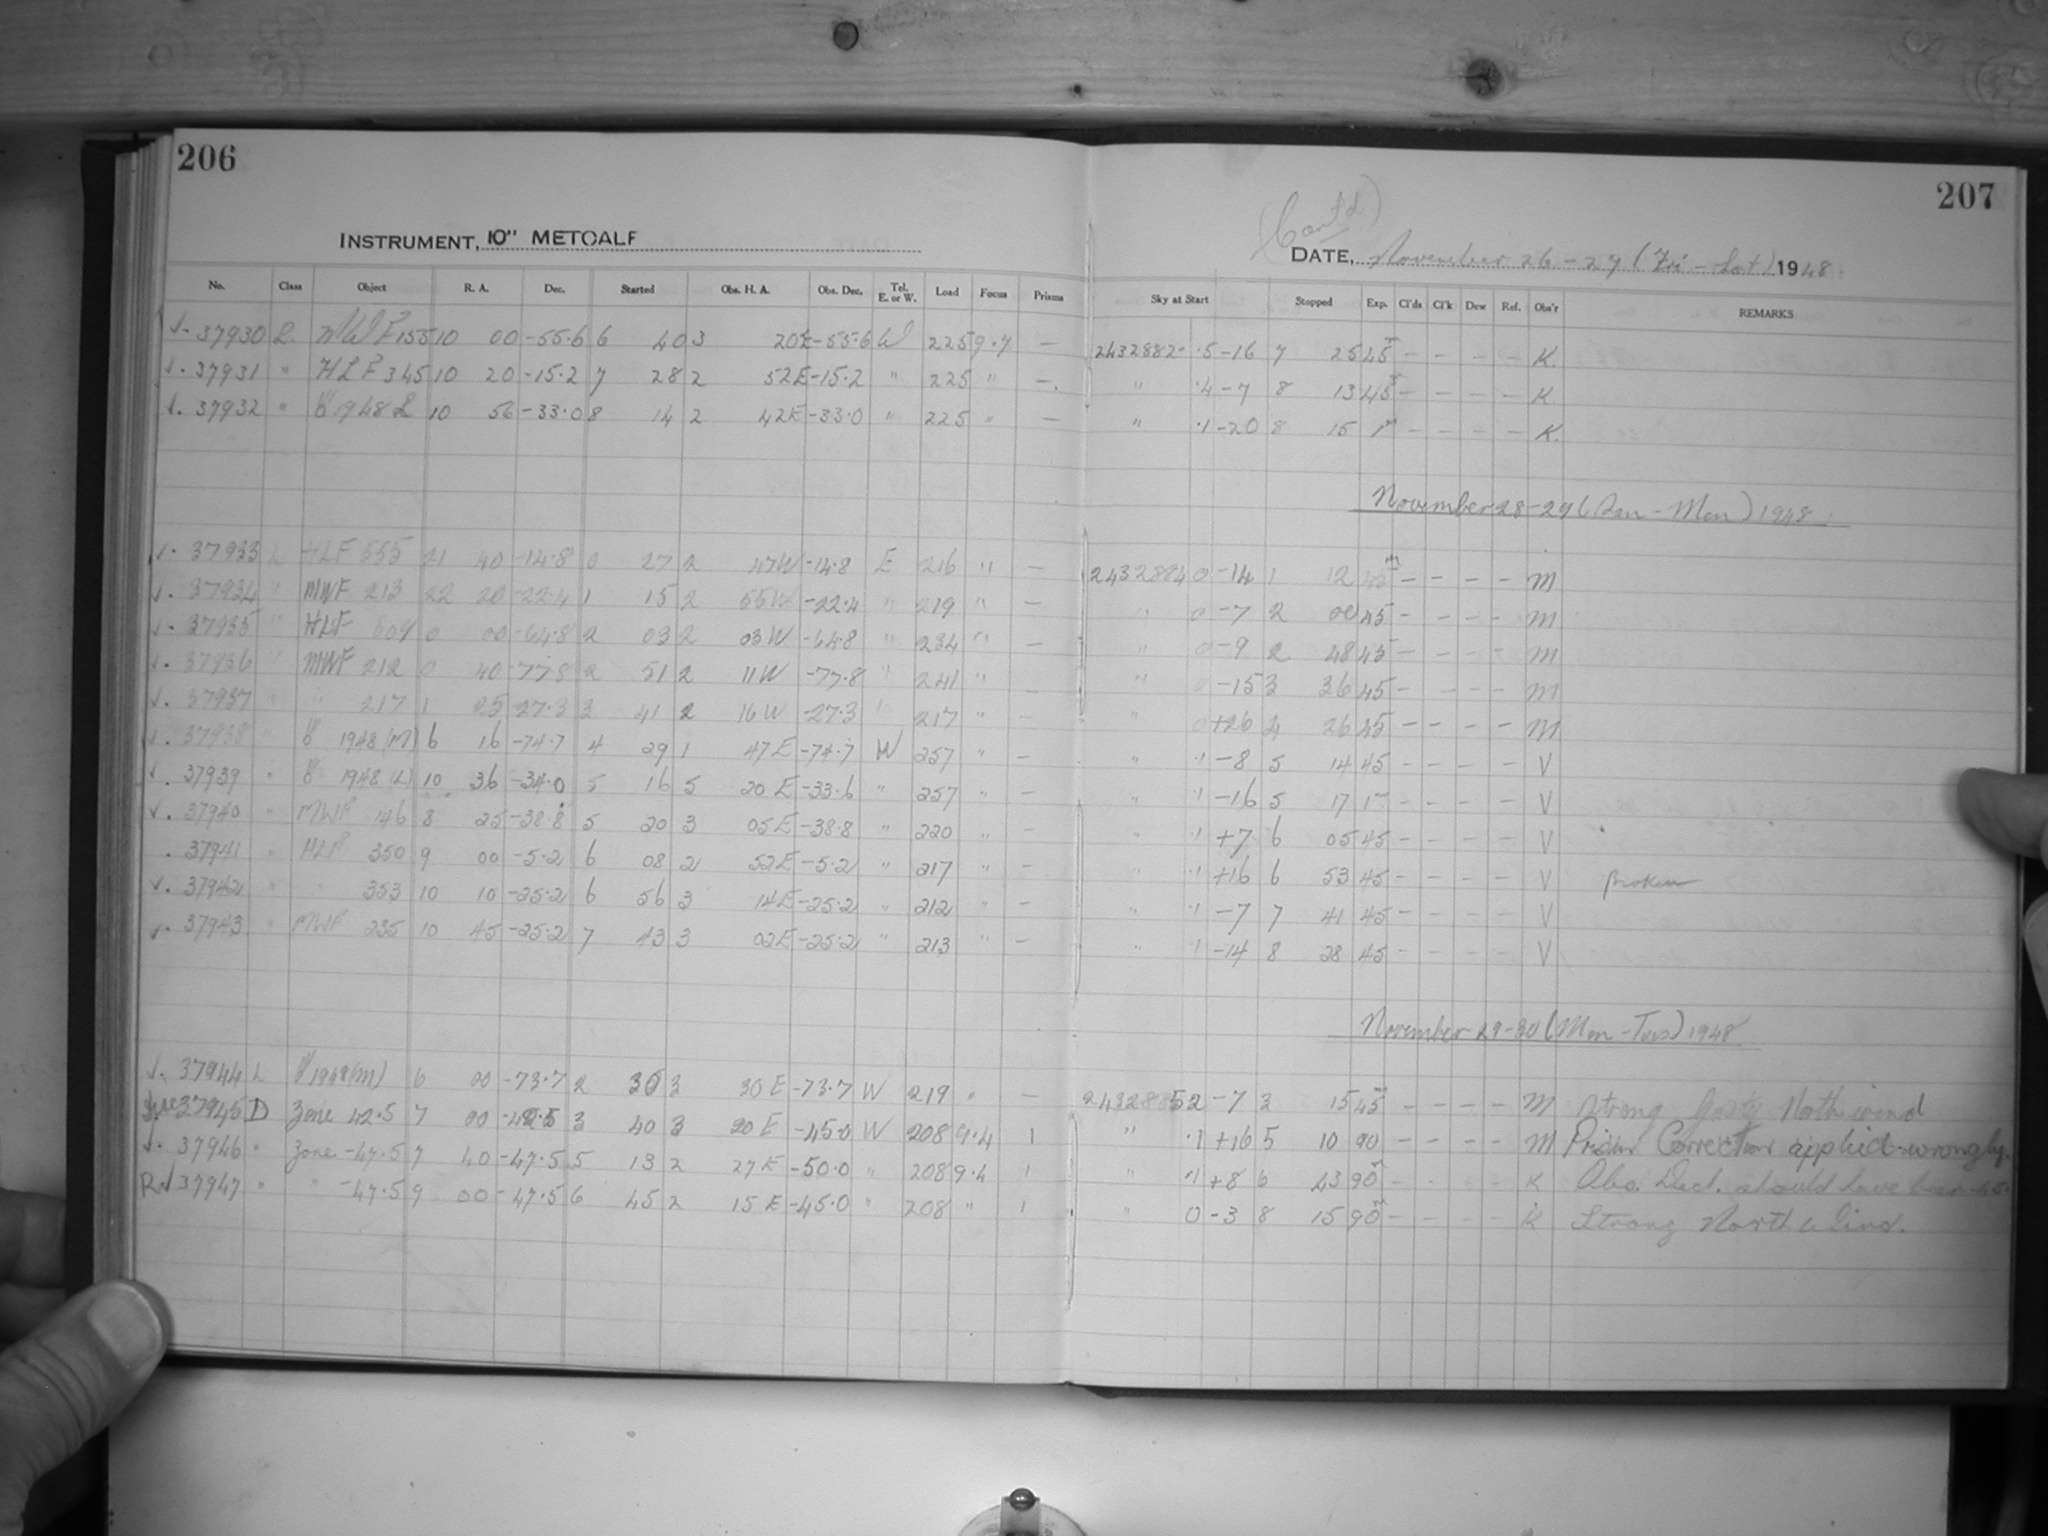 206
207
(Cont'd)
INSTRUMENT, 10" METCALF
DATE, November 26-27 (Fri-Sat) 1948
No. Class Object R. A. Dec. Started Obs. H. A. Obs. Dec. Tel. E. or W. Load Focus Prisms Sky at Start Stopped Exp. Cl'ds Cl'k Dew Ref. Obs'r REMARKS
√. 37930 L. MWF 155 10 00 -55.6 6 40 3 20E -55.6 W 225 9.7 — 2432882 .5 -16 7 25 45m – – – – K.
√. 37931 " HLF 345 10 20 -15.2 7 28 2 52E -15.2 " 225 " —. " .4 -7 8 13 45m – – – – K
√. 37932 " 1948 L 10 56 -33.0 8 14 2 42E -33.0 " 225 " — " .1 -20 8 15 1m – – – – K.
November 28-29 (Sun-Mon) 1948
√. 37933 L HLF 555 21 40 -14.8 0 27 2 47W -14.8 E 216 " — 2432884 0 -14 1 12 45m – – – – M
√. 37934 " MWF 213 22 20 -22.4 1 15 2 55W -22.4 " 219 " — " 0 -7 2 00 45 – – – – M
√. 37935 " HLF 509 0 00 -64.8 2 03 2 03W -64.8 " 234 " — " 0 -9 2 48 45 – – – – M
√. 37936 " MWF 212 0 40 -77.8 2 51 2 11W -77.8 " 241 " — " 0 -15 3 36 45 – – – – M
√. 37937 " " 217 1 25 -27.3 3 41 2 16W -27.3 " 217 " — " 0 +26 4 26 45 – – – – M
√. 37938 " 1948 (M) 6 16 -74.7 4 29 1 47E -74.7 W 257 " — " .1 -8 5 14 45 – – – – V
√. 37939 " 1948 (L) 10 36 -34.0 5 16 5 20E -33.6 " 257 " — " .1 -16 5 17 1m – – – – V
√. 37940 " MWF 146 8 25 -38.8 5 20 3 05E -38.8 " 220 " — " .1 +7 6 05 45 – – – – V
. 37941 " HLF 350 9 00 -5.2 6 08 2 52E -5.2 " 217 " — " .1 +16 6 53 45 – – – – V Broken
√. 37942 " " 353 10 10 -25.2 6 56 3 14E -25.2 " 212 " — " .1 -7 7 41 45 – – – – V
√. 37943 " MWF 235 10 45 -25.2 7 43 3 02E -25.2 " 213 " — " .1 -14 8 28 45 – – – – V
November 29-30 (Mon-Tues) 1948
√. 37944 L 1948(M) 6 00 -73.7 2 30 3 30E -73.7 W 219 " — 2432885 2 -7 3 15 45m – – – – M Strong Gusty North wind
37945 D Zone 42.5 7 00 -42.5 3 40 3 20E -45.0 W 208 9.4 1 " .1 +16 5 10 90 – – – – M Prism Correction applied wrongly.
√. 37946 " Zone -47.5 7 40 -47.5 5 13 2 27E -50.0 " 208 9.4 1 " .1 +8 6 43 90m – – – – K Obs. Decl. should have been -45.
R√ 37947 " " -47.5 9 00 -47.5 6 45 2 15E -45.0 " 208 " 1 " 0 -3 8 15 90m – – – – K Strong North Wind.